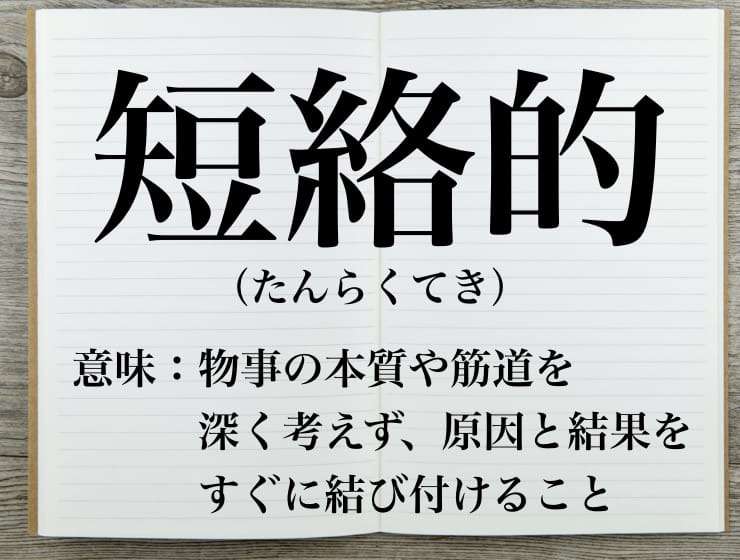 短絡的
（たんらくてき）
意味：物事の本質や筋道を
深く考えず、原因と結果を
すぐに結び付けること